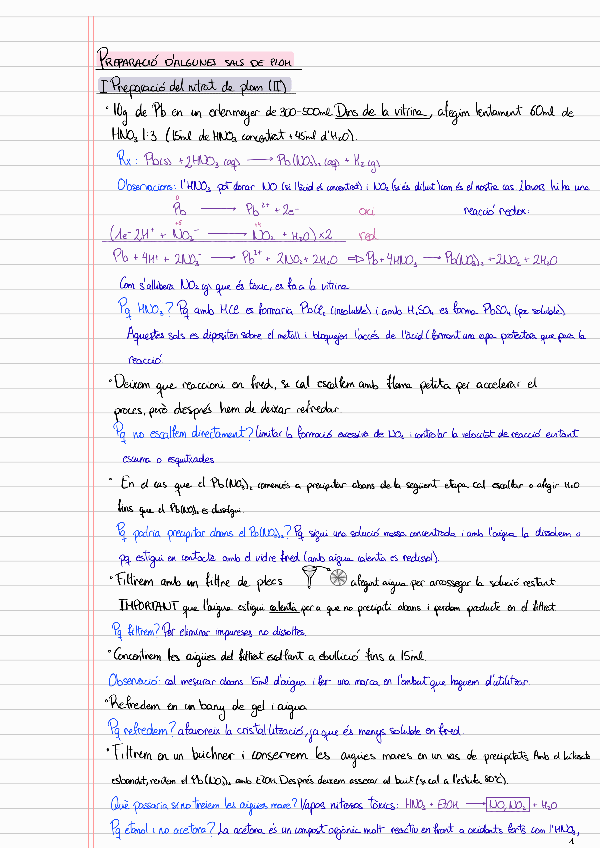 PREPARACIÓ D'ALGUNES SALS DE PLOM
I Preparació del nitrat de plom (II)
• 10g de Pb en un erlenmeyer de 300-500ml Dins de la vitrina, afegim lentament 60ml de
HNO₃ 1:3 (15ml de HNO₃ concentrat + 45ml d'H₂O).
Rx: Pb(s) + 2HNO₃ (aq) → Pb(NO₃)₂ (aq) + H₂ (g)
Observacions: l'HNO₃ pot donar NO (si l'àcid és concentrat) i NO₂ (si és diluït) com és el nostre cas llavors hi ha una
Pb → Pb²⁺ + 2e⁻ oxi reacció redox:
(1e⁻ 2H⁺ + NO₃⁻ → NO₂ + H₂O) × 2 red
Pb + 4H⁺ + 2NO₃⁻ → Pb²⁺ + 2NO₂ + 2H₂O ⇒ Pb + 4HNO₃ → Pb(NO₃)₂ + 2NO₂ + 2H₂O
Com s'allibera NO₂ (g) que és tòxic, es fa a la vitrina
Pq HNO₃? Pq amb HCl es formaria PbCl₂ (insoluble) i amb H₂SO₄ es forma PbSO₄ (poc soluble)
Aquestes sals es dipositen sobre el metall i bloquejen l'accés de l'àcid (formant una capa protectora que para la
reacció.
• Deixem que reaccioni en fred, si cal escalfem amb flama petita per accelerar el
procés, però després hem de deixar refredar
Pq no escalfem directament? Limitar la formació excessiva de NO₂ i controlar la velocitat de reacció evitant
escuma o esquitxades
• En el cas que el Pb(NO₃)₂ comencés a precipitar abans de la següent etapa cal escalfar o afegir H₂O
fins que el Pb(NO₃)₂ es dissolgui.
Pq podria precipitar abans el Pb(NO₃)₂? Pq sigui una solució massa concentrada i amb l'aigua la dissolem o
pq estigui en contacte amb el vidre fred (amb aigua calenta es redissol).
• Filtrem amb un filtre de plecs afegint aigua per arrossegar la solució restant
IMPORTANT que l'aigua estigui calenta per a que no precipiti abans i perdem producte en el filtrat
Pq filtrem? Per eliminar impureses no dissoltes.
• Concentrem les aigües del filtrat escalfant a ebullició fins a 15ml.
Observació: cal mesurar abans 15ml d'aigua i fer una marca en l'embut que haguem d'utilitzar.
• Refredem en un bany de gel i aigua
Pq refredem? afavoreix la cristal·lització, ja que és menys soluble en fred.
• Filtrem en un büchner i conservem les aigües mares en un vas de precipitats. Amb el
esbandit, rentem el Pb(NO₃)₂ amb EtOH. Després deixem assecar al buit (si cal a l'estufa 80°C).
Què passaria si no traiem les aigües mare? Vapos nitrosos tòxics: HNO₃ + EtOH → NO, NO₂ + H₂O
Pq etanol i no acetona? La acetona és un compost orgànic molt reactiu en front a oxidants forts com l'HNO₃,
1